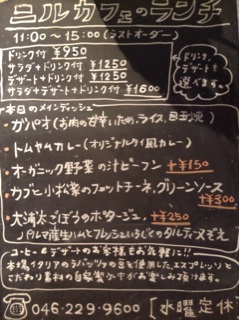 ニルカフェのランチ
11:00〜15:00(ラストオーダー)
ドリンク付 ¥950
サラダ+ドリンク付 ¥1250
デザート+ドリンク付 ¥1250
サラダ+デザート+ドリンク付 ¥1500
ドリンク、デザートも選べます。
本日のメインディッシュ
・ガパオ(お肉の甘辛いため、ライス、目玉焼)
・トムヤムカレー(オリジナルタイ風カレー)
・オーガニック野菜の汁ビーフン +¥150
・カブと小松菜のフェットチーネ、グリーンソース +¥300
・大浦太ごぼうのポタージュ、 +¥250
パルマ産生ハムとフレッシュいちじくのタルティーヌぞえ
コーヒー&デザートのお客様もお気軽に!!
本場イタリアのラバッツァの豆を使用したエスプレッソと
こだわり素材の自家製ケーキがお楽しみ頂けます。
046-229-9600 [水曜定休]